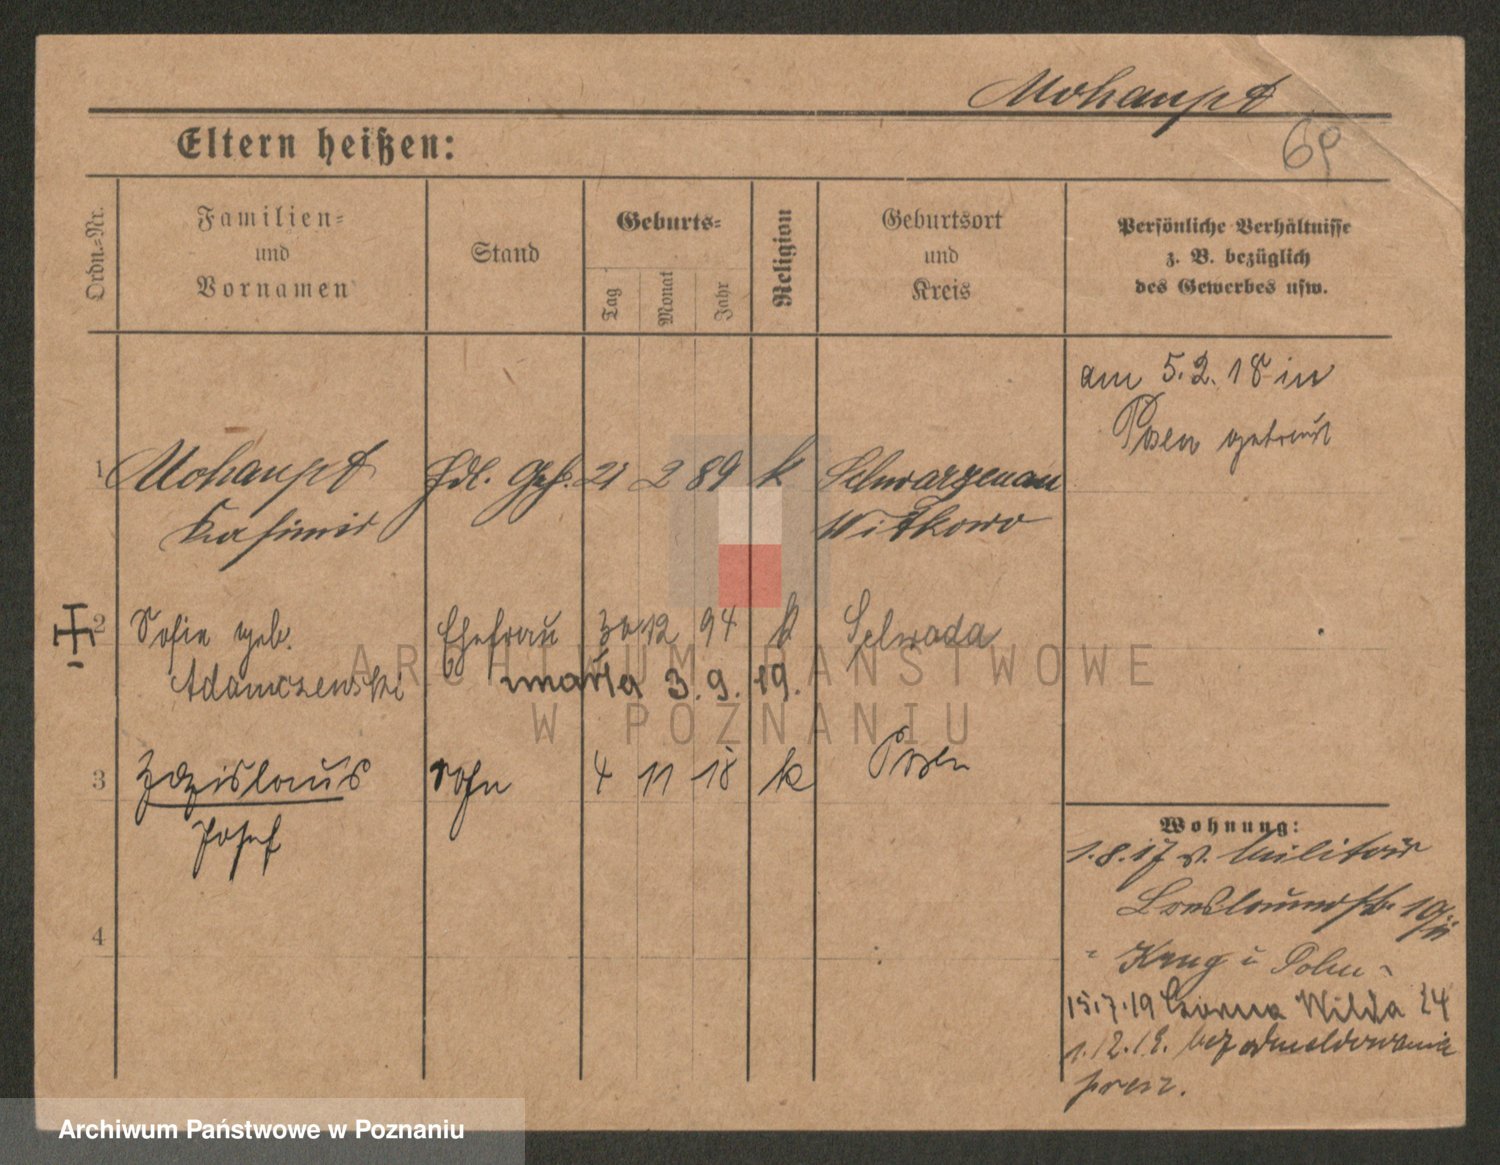 Mohaupt
69
Eltern heißen:
Ordn.=Nr.
Familien=
und
Vornamen
Stand
Geburts=
Tag
Monat
Jahr
Religion
Geburtsort
und
Kreis
Persönliche Verhältnisse
z. B. bezüglich
des Gewerbes usw.
am 5.2.18 in
Posen getraut
1 Mohaupt Hdl. Geh. 21 2 89 k Schwarzenau
Kasimir Witkowo
2 Sofie geb. Ehefrau 30 12 94 k Schroda
Adamczewski umarła 3.9.19.
3 Zdzislaus Sohn 4 11 18 k Posen
Josef
4
Wohnung:
1.8.17 v. Militär
Breslauerstr. 19
" Krug i Polen
15.7.19 Czarna Wilda 24
1.12.19. bez odmeldowania
ARCHIWUM PAŃSTWOWE
W POZNANIU
Archiwum Państwowe w Poznaniu